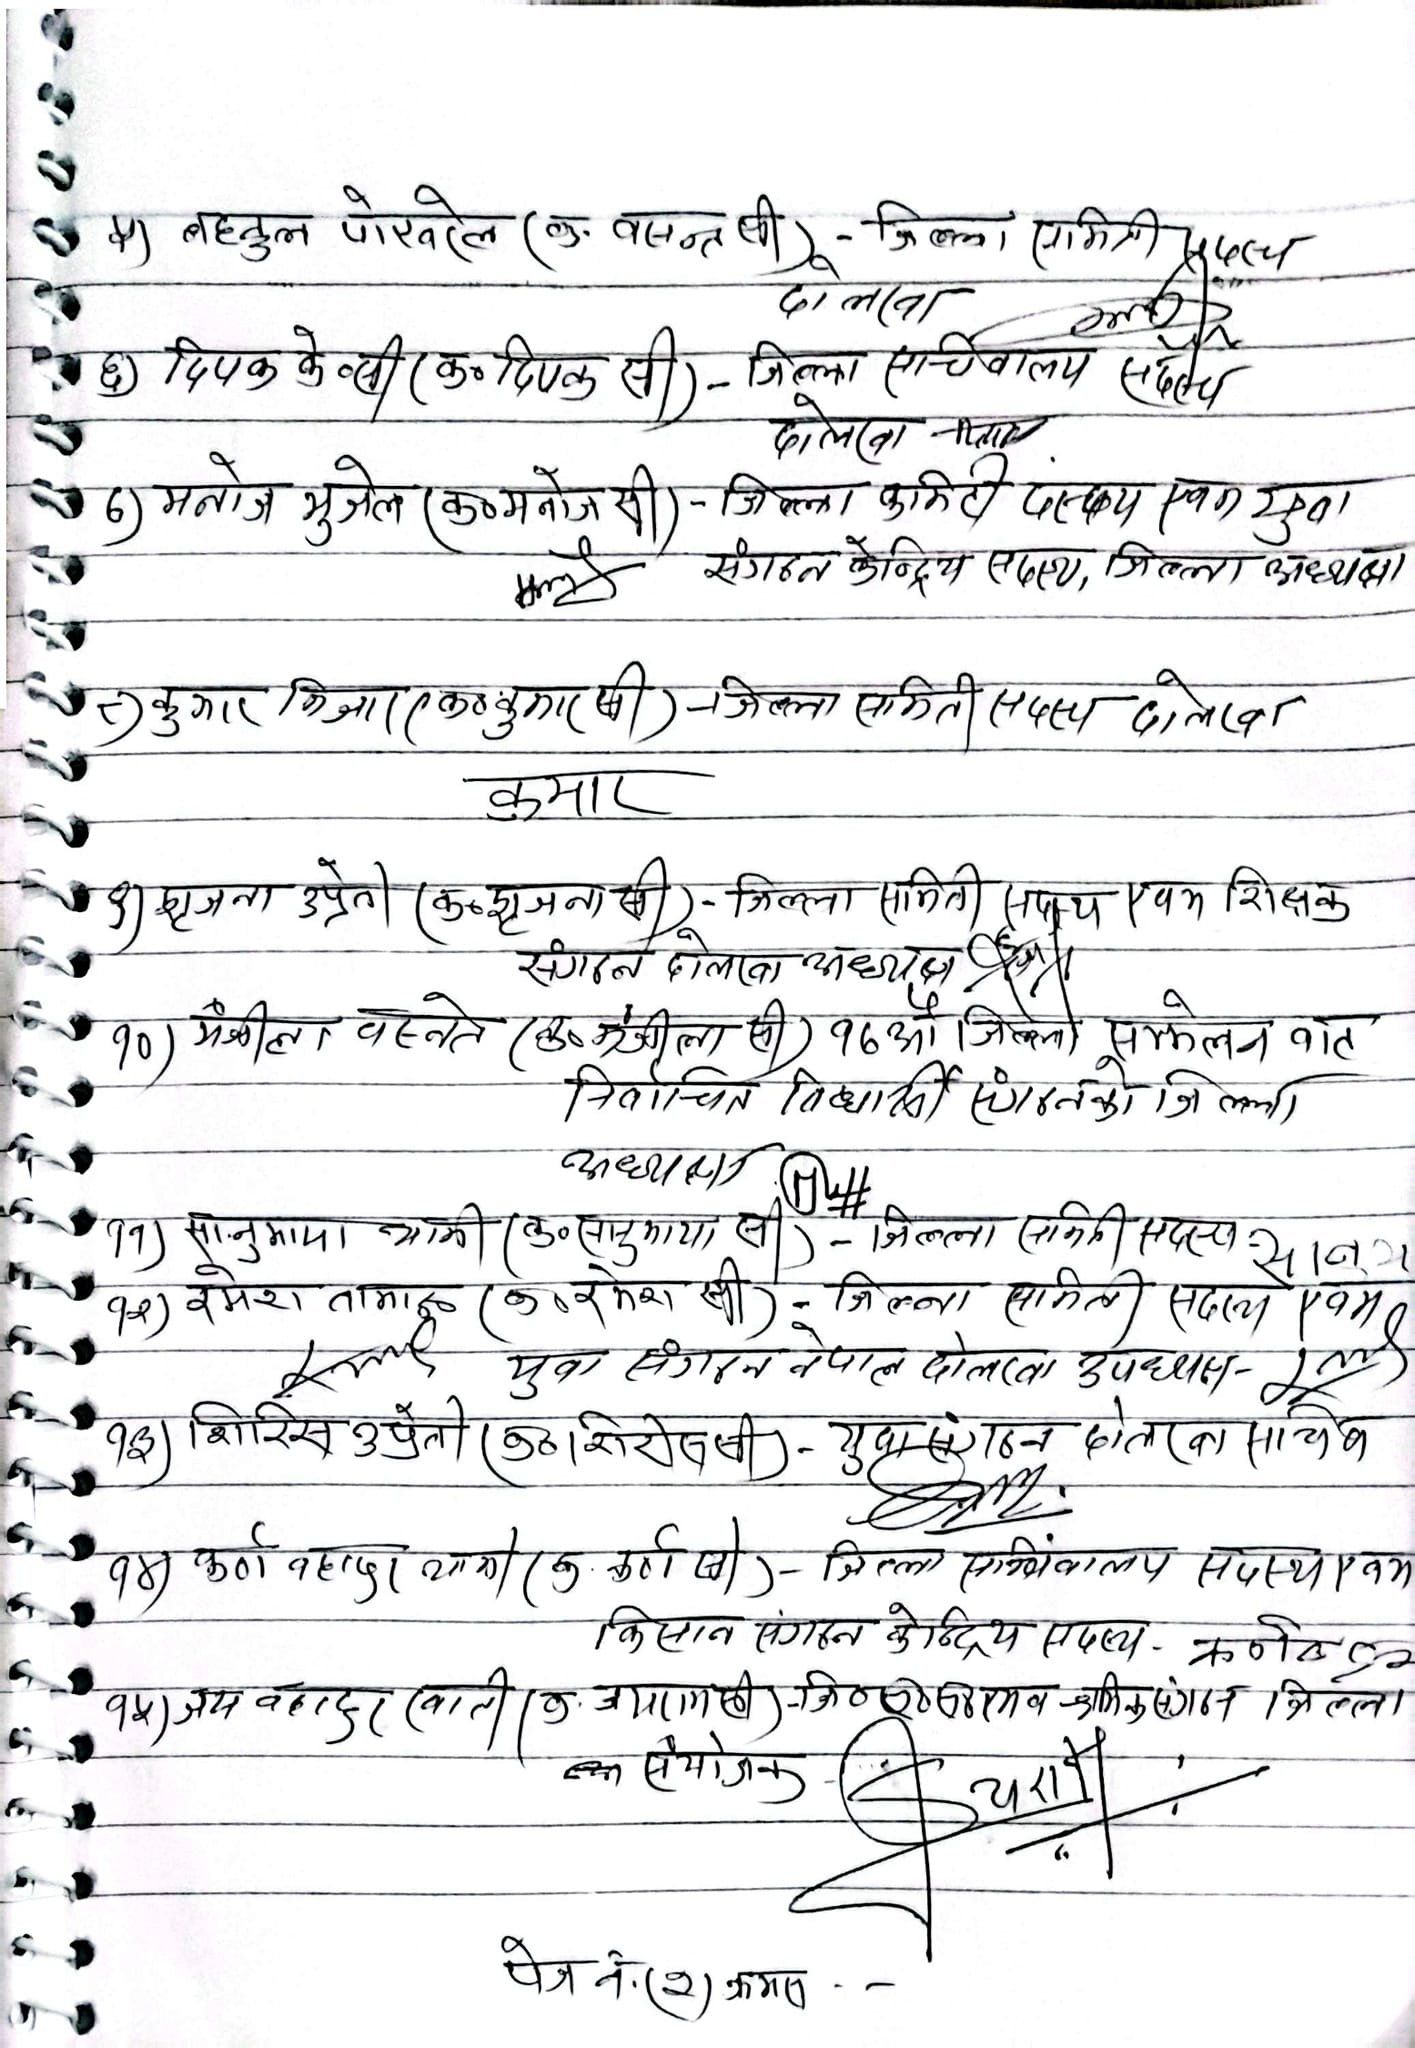 ५) पोखरेल (क. वसन्त सी) - जिल्ला समिती सदस्य
दोलखा
६) दिपक के०सी (क० दिपक सी) - जिल्ला सचिवालय सदस्य
दोलखा
७) मनोज भुजेल (क० मनोज सी) - जिल्ला कमिटी सदस्य एवम युवा
संगठन केन्द्रिय सदस्य, जिल्ला अध्यक्ष
८) कुमार (क० कुमार सी) - जिल्ला समिती सदस्य दोलखा
कुमार
९) सृजना उप्रेती (क० सृजना सी) - जिल्ला समिती सदस्य एवम शिक्षक
संगठन दोलखा अध्यक्ष
१०) वस्नेत (क० सी) १७औ जिल्ला सम्मेलन वाट
निर्वाचित विद्यार्थी संगठनको जिल्ला
अध्यक्ष
११) सानुमाया (क० सानुमाया सी) - जिल्ला समिती सदस्य
१२) रमेश तामाङ (क० रमेश सी) - जिल्ला समिती सदस्य एवम
युवा संगठन नेपाल दोलखा उपध्यक्ष -
१३) शिरिस उप्रेती (क० सी) - युवा संगठन दोलखा सचिव
१४) कर्ण वहादुर (क. कर्ण सी) - जिल्ला सचिवालय सदस्य एवम
किसान संगठन केन्द्रिय सदस्य -
१५) जय वहादुर खाती (क. जयराम सी) - श्रमिक संगठन जिल्ला
संयोजक
पेज नं. (२) क्रमस . . -